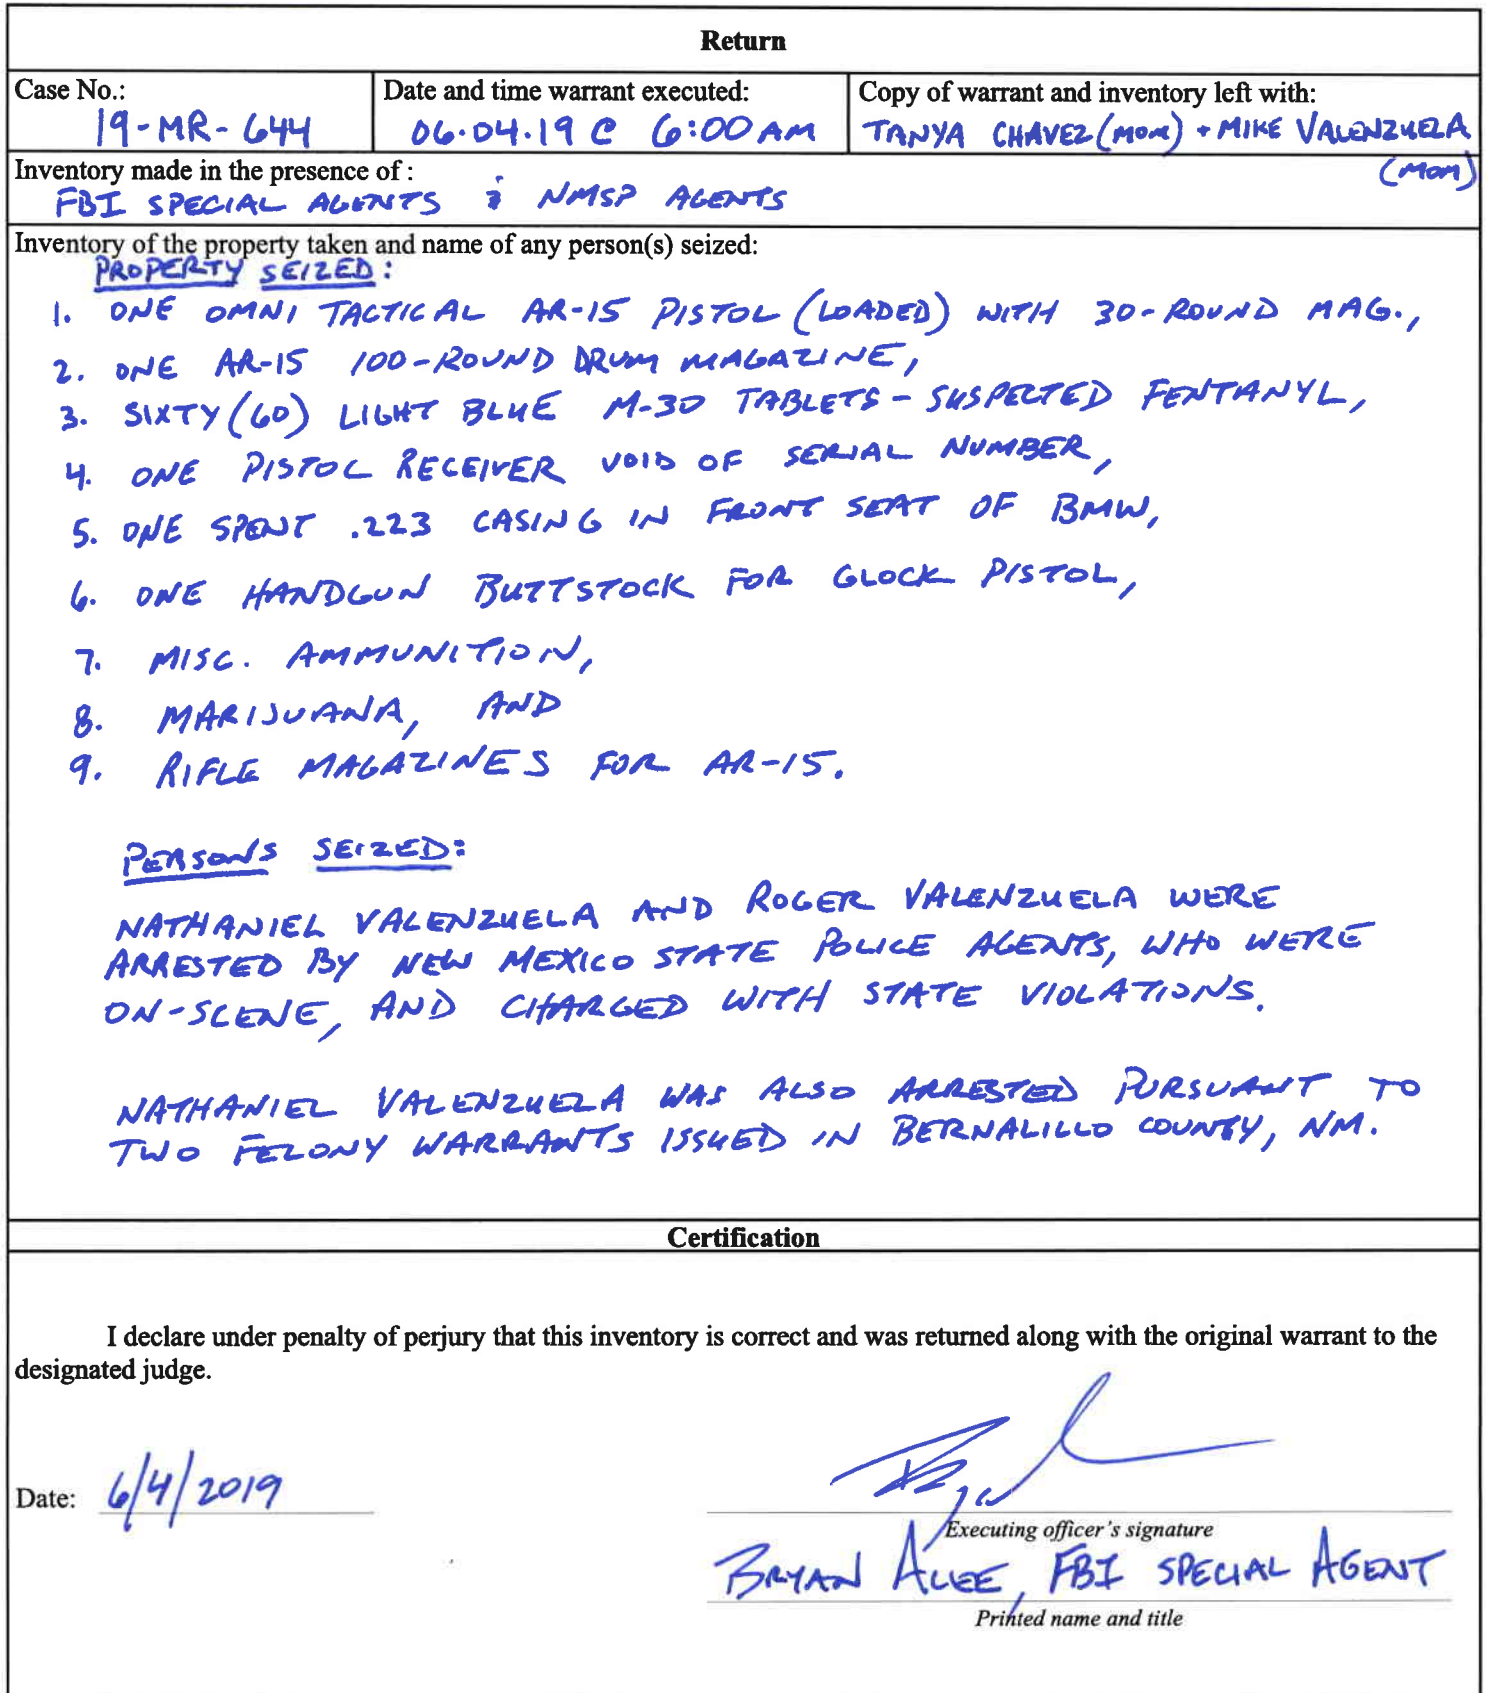 Return
Case No.:
19-MR-644
Date and time warrant executed:
06.04.19 @ 6:00 AM
Copy of warrant and inventory left with:
TANYA CHAVEZ (MOM) + MIKE VALENZUELA
(MOM)
Inventory made in the presence of :
FBI SPECIAL AGENTS & NMSP AGENTS
Inventory of the property taken and name of any person(s) seized:
PROPERTY SEIZED:
1. ONE OMNI TACTICAL AR-15 PISTOL (LOADED) WITH 30-ROUND MAG.,
2. ONE AR-15 100-ROUND DRUM MAGAZINE,
3. SIXTY (60) LIGHT BLUE M-30 TABLETS - SUSPECTED FENTANYL,
4. ONE PISTOL RECEIVER VOID OF SERIAL NUMBER,
5. ONE SPENT .223 CASING IN FRONT SEAT OF BMW,
6. ONE HANDGUN BUTTSTOCK FOR GLOCK PISTOL,
7. MISC. AMMUNITION,
8. MARIJUANA, AND
9. RIFLE MAGAZINES FOR AR-15.
PERSONS SEIZED:
NATHANIEL VALENZUELA AND ROGER VALENZUELA WERE
ARRESTED BY NEW MEXICO STATE POLICE AGENTS, WHO WERE
ON-SCENE, AND CHARGED WITH STATE VIOLATIONS.
NATHANIEL VALENZUELA WAS ALSO ARRESTED PURSUANT TO
TWO FELONY WARRANTS ISSUED IN BERNALILLO COUNTY, NM.
Certification
I declare under penalty of perjury that this inventory is correct and was returned along with the original warrant to the
designated judge.
Date: 6/4/2019
Executing officer's signature
BRYAN ACEE, FBI SPECIAL AGENT
Printed name and title